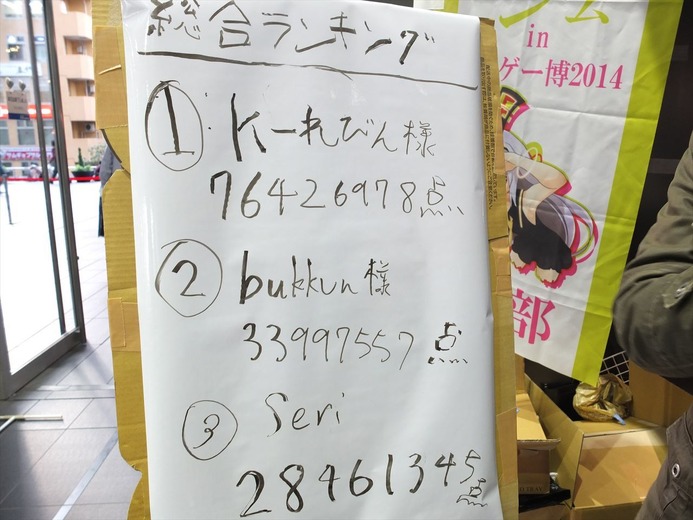 総合ランキング
① Kーれびん様
76426978点
② bukkun様
33997557点
③ Seri
28461345点
in
ゲー博2014
部